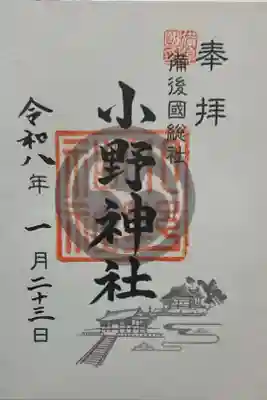 奉拝
備後國総社
小野神社
令和八年 一月二十三日